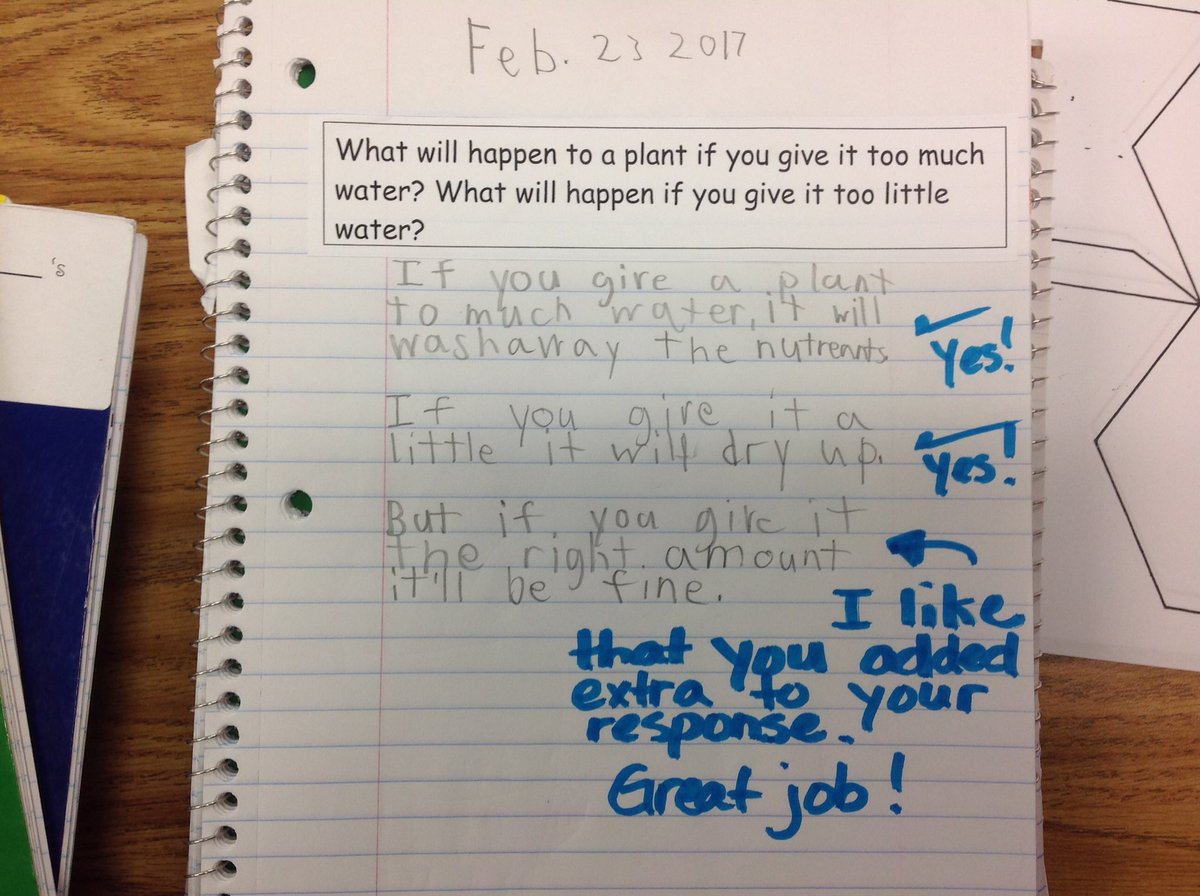 Feb. 23 2017
What will happen to a plant if you give it too much
water? What will happen if you give it too little
water?
If you give a plant
to much water, it will
washaway the nutrennts
yes!
If you give it a
little it will dry up.
yes!
But if you give it
the right amount
it'll be fine.
I like
that you added
extra to your
response.
Great job!
's